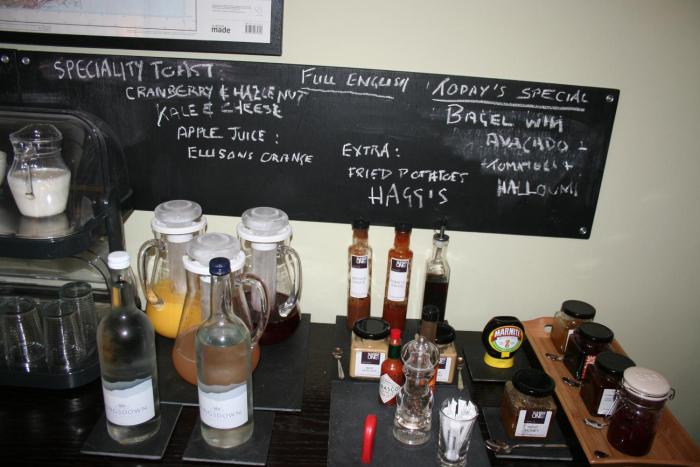 made
SPECIALITY TOAST:
CRANBERRY & HAZLENUT
KALE & CHEESE
APPLE JUICE:
ELLISONS ORANGE
FULL ENGLISH
EXTRA:
FRIED POTATOES
HAGGIS
TODAY'S SPECIAL
BAGEL WITH
AVACADO +
TOMATOES +
HALLOUMI
KINGSDOWN
MARMITE
TABASCO
HONEY